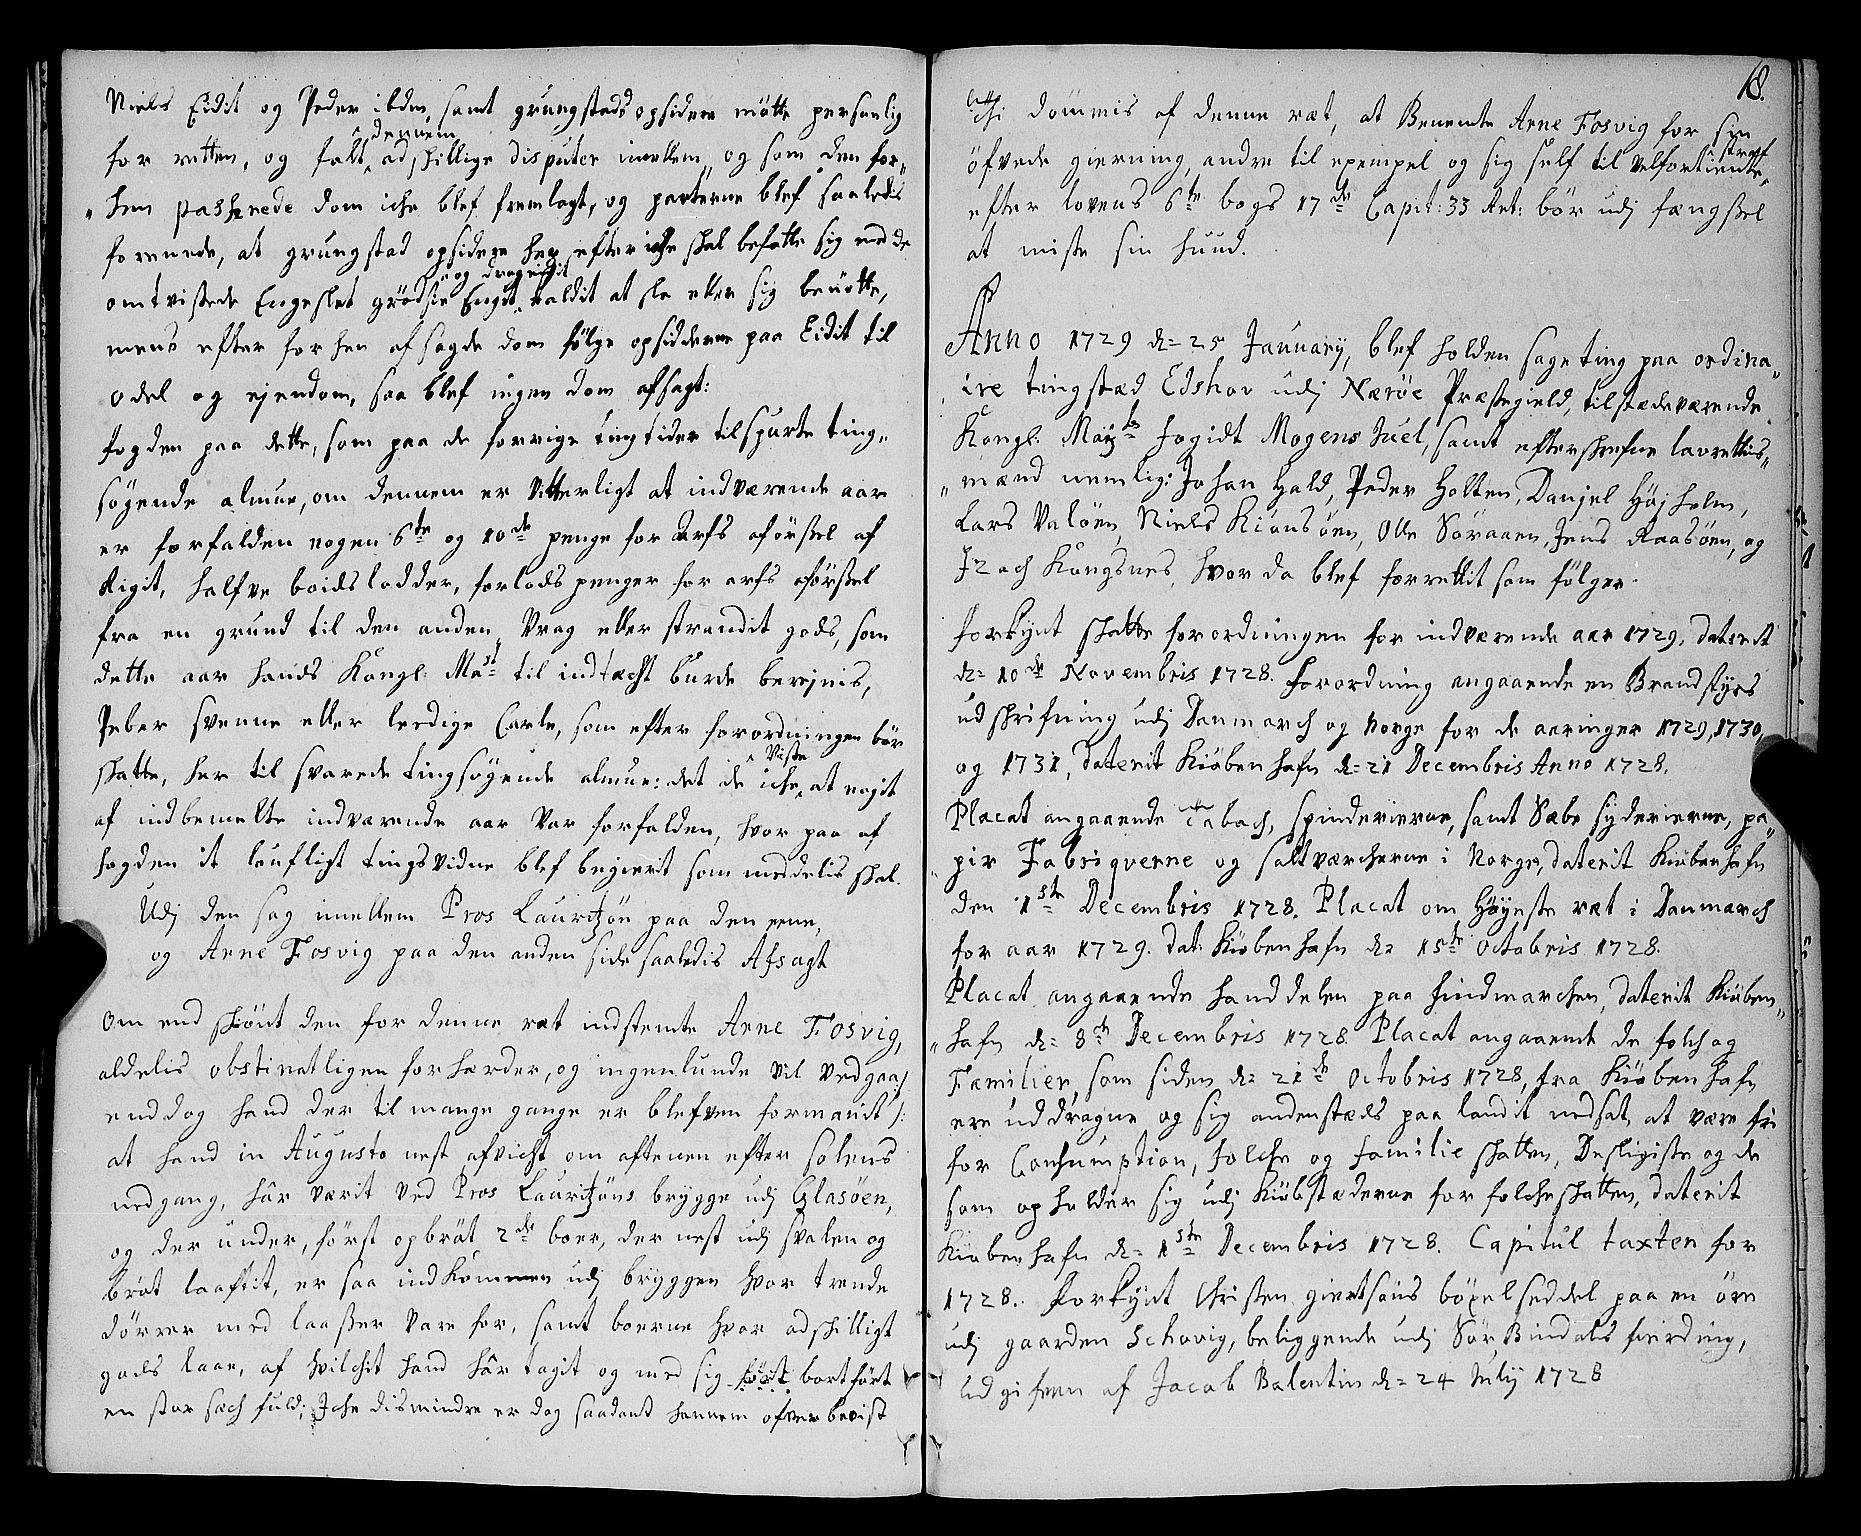 Niels Eidit og Peder ibdm, samt grungstads opsidere møtte personlig
for retten, og falt dennem adskillige disputer imellem, og som den for„
„hen passerede dom iche blef fremlagt, og parterne blef saaledis
forenede, at grungstad opsidere her efter iche skal befatte sig med de
omtvistede Engeslet grødsie Enget og dragerit kaldit at sla eller sig benötte,
mens efter forhen afsagde dom fölge opsidderne paa Eidit til
odel og ejendom, saa blef ingen dom afsagt:
fogden paa dette, som paa de forrige tingtider tilspurte ting„
søgende almue, om dennem er vitterligt at indværende aar
er forfalden nogen 6te og 10de penge for arfs aførssel af
Rigit, halfve boidslodder, forlods penger for arfs aførssel
fra en grund til den anden, Vrag eller strandit gods, som
dette aar hands Kongl: Ma:st til indtægt burde berejnis,
Peber svenne eller lerdige Carle, som efter forordningen bør
skatte, her til svarede tingsøgende almue: det de iche Viste at nogit
af indbemelte indværende aar var forfalden, hvor paa af
fogden it loufligt tingsvidne blef begierit som meddelis skal.
Udj den sag imellem Pros Lauritzön paa den eene,
og Arne Fosvig paa den anden side saaledis Afsagt
Om end skiönt den for denne ræt indstemte Arne Fosvig,
aldelis obstinatligen forhærder, og ingenlunde vil vedgaa/
enddog hand der til mange gange er blefven formanit/:
at hand in Augusto nest afvicht om aftenen efter solens
nedgang, hâr værit ved Pros Lauritzöns brygge udj Glasöen,
og der under, först opbröt 2de boer, der nest udj svalen og
bröt laaftit, er saa indkommen udj bryggen hvor trende
dörrer med laasser vare for, samt boerne hvor adskilligt
gods laae, af hvilchit hand hâr tagit og med sig bortfört
en stor sæch fuld; Iche dismindre er dog saadant hannem ofverbevist
18.
Thi dömmis af denne ræt, at Benemte Arne Fosvig for sin
öfvede gierning, andre til exempel og sig self til velfortiente straf
efter lovens 6te bogs 17de Capit: 33 Art: bör udj fængssel
at miste sin huud.
Anno 1729 d= 25 January, blef holden sageting paa ordina„
„ire tingstæd Edshov udj Nærøe Præstegield, tilstædeværende
Kongl: May:ts fogidt Mogens Juel, samt efterskrefne lavrettis„
„mænd nemlig: Johan Hald, Peder Holten, Danjel Høyholm,
Lars Valöen, Niels Kiönsöen, Olle Söraaen, Jens Raasöen, og
Izach Kongsnes, hvor da blef forrettit som fölger
forkynt skatte forordningen for indværende aar 1729, daterit
d= 10de Novembris 1728. Forordning angaaende en Brandstyrs
udskrifning udj Danmarch og Norge for de aaringer 1729, 1730,
og 1731, daterit Kiöbenhafn d= 21 Decembris Anno 1728.
Placat angaaende Tabach, spinderierne, samt Sæbe syderierne, pa„
„pir Fabriqverne og saltværcherne i Norge, daterit Kiöbenhafn
den 1ste Decembris 1728. Placat om Höyeste ræt i Danmarch
for aar 1729. dat: Kiöbenhafn d= 15te Octobris 1728.
Placat angaaende handdelen paa findmarchen, daterit Kiöben„
„hafn d= 8de Decembris 1728. Placat angaaende de folch og
Familier, som siden d= 21de Octobris 1728, fra Kiöbenhafn
ere uddragne og sig andenstæds paa landit nedsat, at være fri
for Consumption, folche og familie skatten, Desligiste og de
som opholder sig udj Kiöbstæderne for folcheskatten, daterit
Kiøbenhafn d= 1ste Decembris 1728. Capitul taxten for
1728. Forkynt Christen giertsöns böxelseddel paa en öre
udj gaarden Schovig, beliggende udj Sör Bindals fierding,
Udgifven af Jacob Balentin d= 24 July 1728